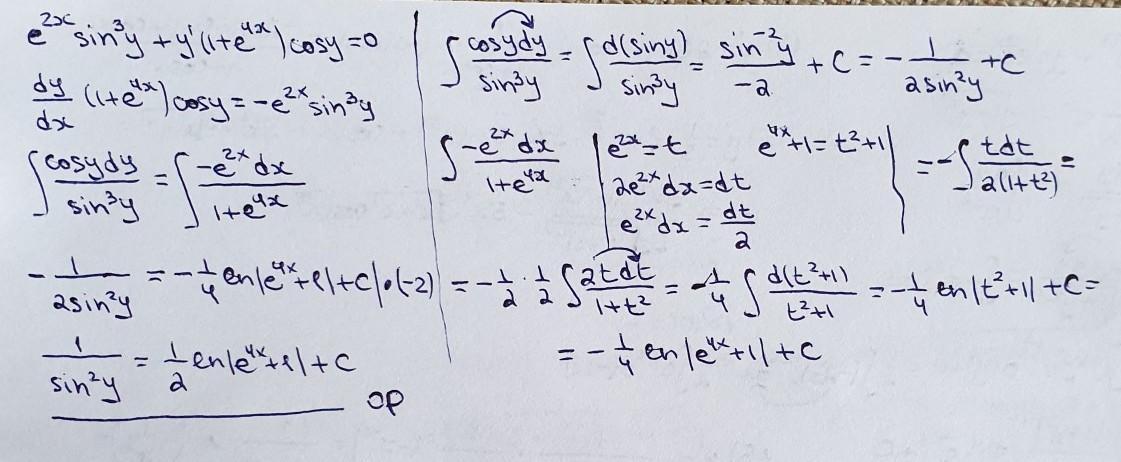 e^{2x} sin^3y + y'(1+e^{4x})cosy=0
dy/dx (1+e^{4x})cosy = -e^{2x} sin^3y
∫ cosydy/sin^3y = ∫ -e^{2x}dx/1+e^{4x}
-1/2sin^2y = -1/4 ln|e^{4x}+1|+c |·(-2)
1/sin^2y = 1/2 ln|e^{4x}+1|+c
OP
∫ cosydy/sin^3y = ∫ d(siny)/sin^3y = sin^{-2}y/-2 + C = -1/2sin^2y + C
∫ -e^{2x}dx/1+e^{4x} | e^{2x}=t e^{4x}+1=t^2+1 | = -∫ tdt/2(1+t^2) =
2e^{2x}dx=dt
e^{2x}dx = dt/2
= -1/2 · 1/2 ∫ 2tdt/1+t^2 = -1/4 ∫ d(t^2+1)/t^2+1 = -1/4 ln|t^2+1| + C =
= -1/4 ln|e^{4x}+1| + C